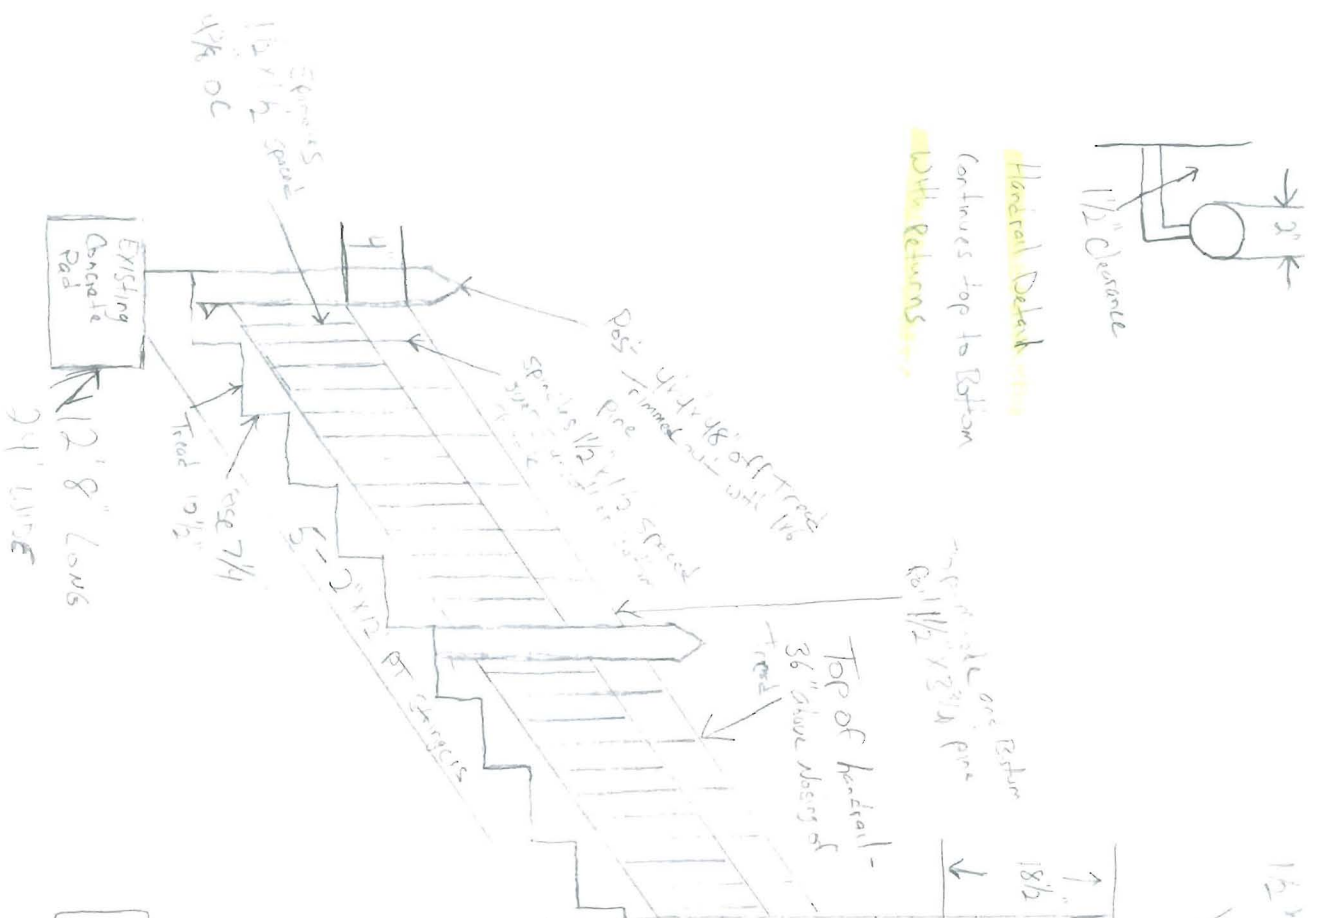 2"
1 1/2" Clearance
Handrail Detail
Continues top to Bottom
With Returns
1 1/2
18 1/2"
pine
Top of handrail -
36" above Nosing of
Tread
4x4x48" off Tread
trimmed out with 1x6
pine
Spindles 1 1/2 x 1 1/2 spaced
4"
Spindles
1 1/2 x 1 1/2 spaced
OC
Existing
Concrete
Pad
12' 8" LONG
Tread 10 1/2"
rise 7 1/4
5 - 2" x 12 PT stringers